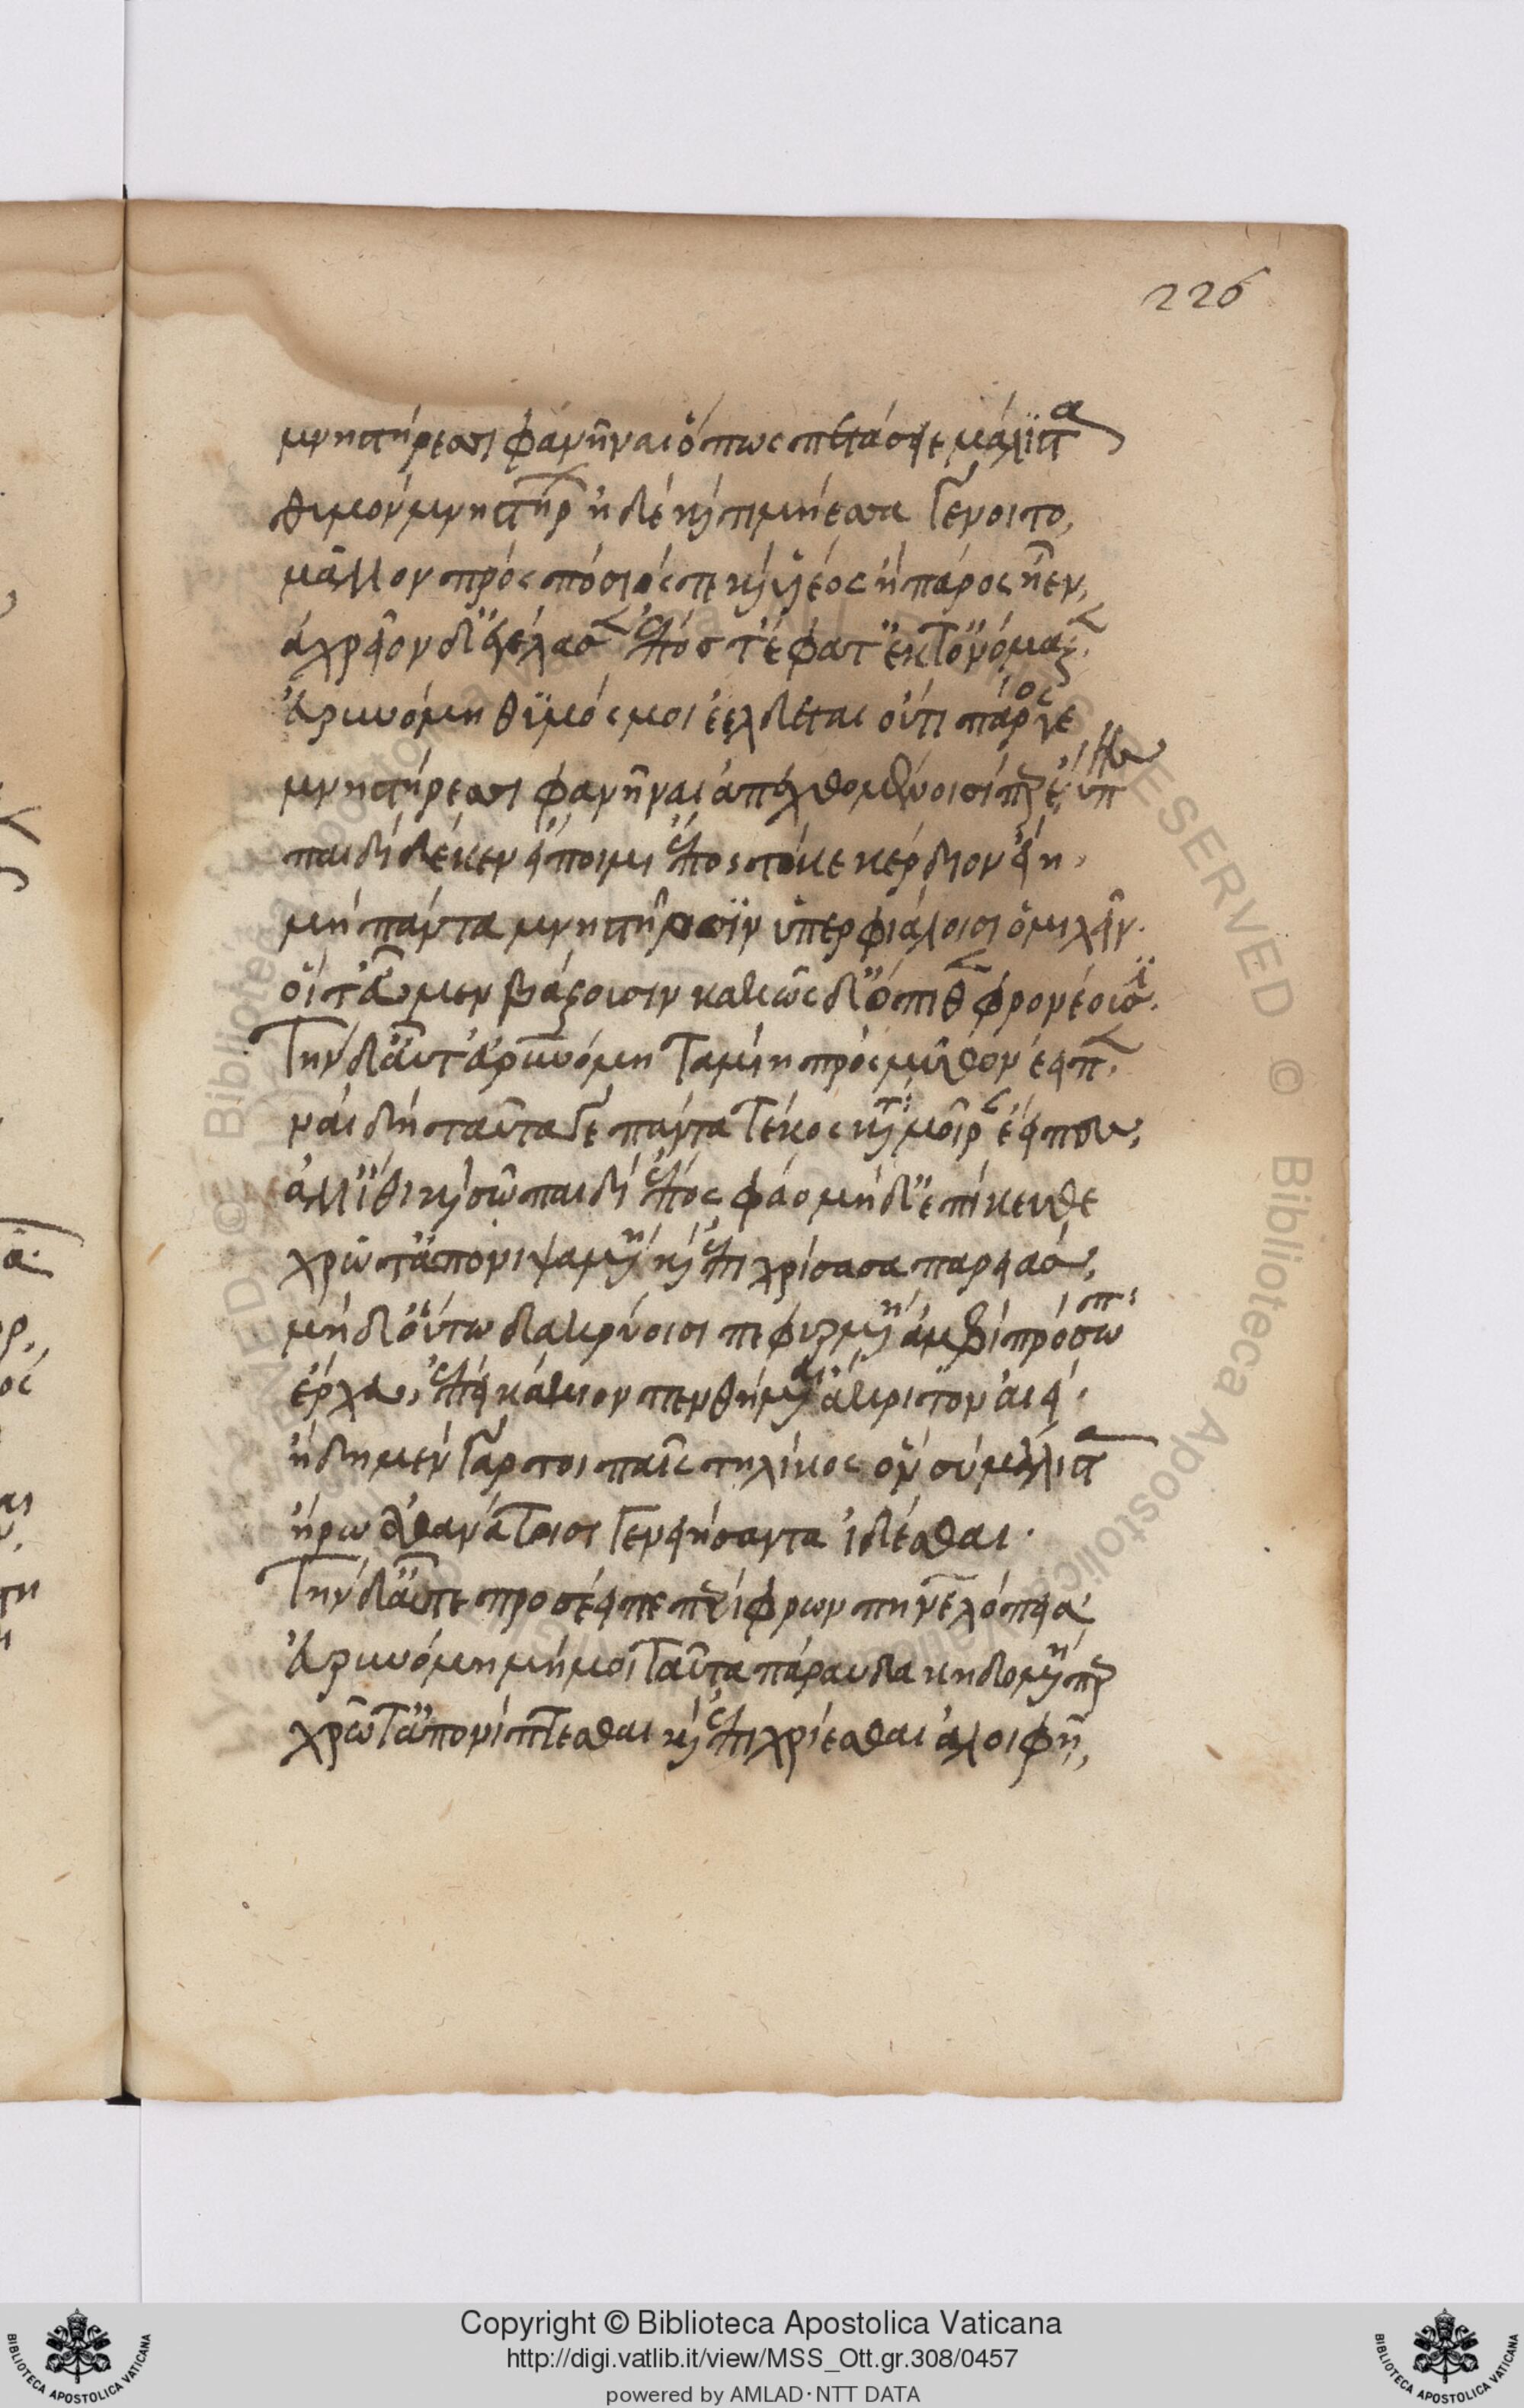 226
μνηστήρεσσι φανῆναι ὅπως πετάσειε μάλιστα
θυμὸν μνηστήρ ἠδὲ κὴ τιμήεσσα γένοιτο,
μᾶλλον πρὸς πόσιός τε κὴ υἱέος ἢ πάρος ἦεν,
ἀχρεῖον δ' ἐγέλασ ἔπός τ' ἔφατ' ἔκ τ' ὀνόμαζ.
Ἐυρυνόμη θυμός μοι ἐέλδεται οὔτι πάρος γε
μνηστήρεσσι φανῆναι ἀπεχθομένοισί περ ἔμπης
παιδὶ δέ κεν εἴποιμι ἔπος τό κε κέρδιον εἴη,
μὴ πάντα μνηστῆρσιν ὑπερφιάλοισι ὁμιλεῖν.
οἵ τ' εὖ μεν βάζουσιν κακῶς δ' ὄπιθ φρονέουσι.
Τὴν δ' αὖτ' Ἐυρυνόμη ταμίη πρὸς μῦθον ἔειπ,
ναὶ δὴ ταῦτα γε πάντα τέκος κατὰ μοῖρ ἔειπες,
ἀλλ' ἴθι κὴ σῶ παιδὶ ἔπος φάο μὴ δ' ἐπίκευθε
χρῶτ' ἀπονιψαμένη κὴ ἐπιχρίσασα παρειάς,
μὴ δ' οὕτω δακρύοισι πεφυρμένη ἀμφὶ πρόσωπα
ἔρχευ, ἐπεὶ κάκιον πενθήμεναι ἄκριτον αἰεί.
ἤδη μὲν γάρ τοι παῖς τηλίκος ὃν σὺ μάλιστα
ἠρῶ ἀθανάτοισι γενειήσαντα ἰδέσθαι.
Τὴν δ' αὖτε προσέειπε περίφρων πηνελόπεια
Ἐυρυνόμη μή μοι ταῦτα πάραυδα κηδομένη περ
χρῶτ' ἀπονίπτεσθαι κὴ ἐπιχρίεσθαι ἀλοιφῆ,
Copyright © Biblioteca Apostolica Vaticana
http://digi.vatlib.it/view/MSS_Ott.gr.308/0457
powered by AMLAD·NTT DATA